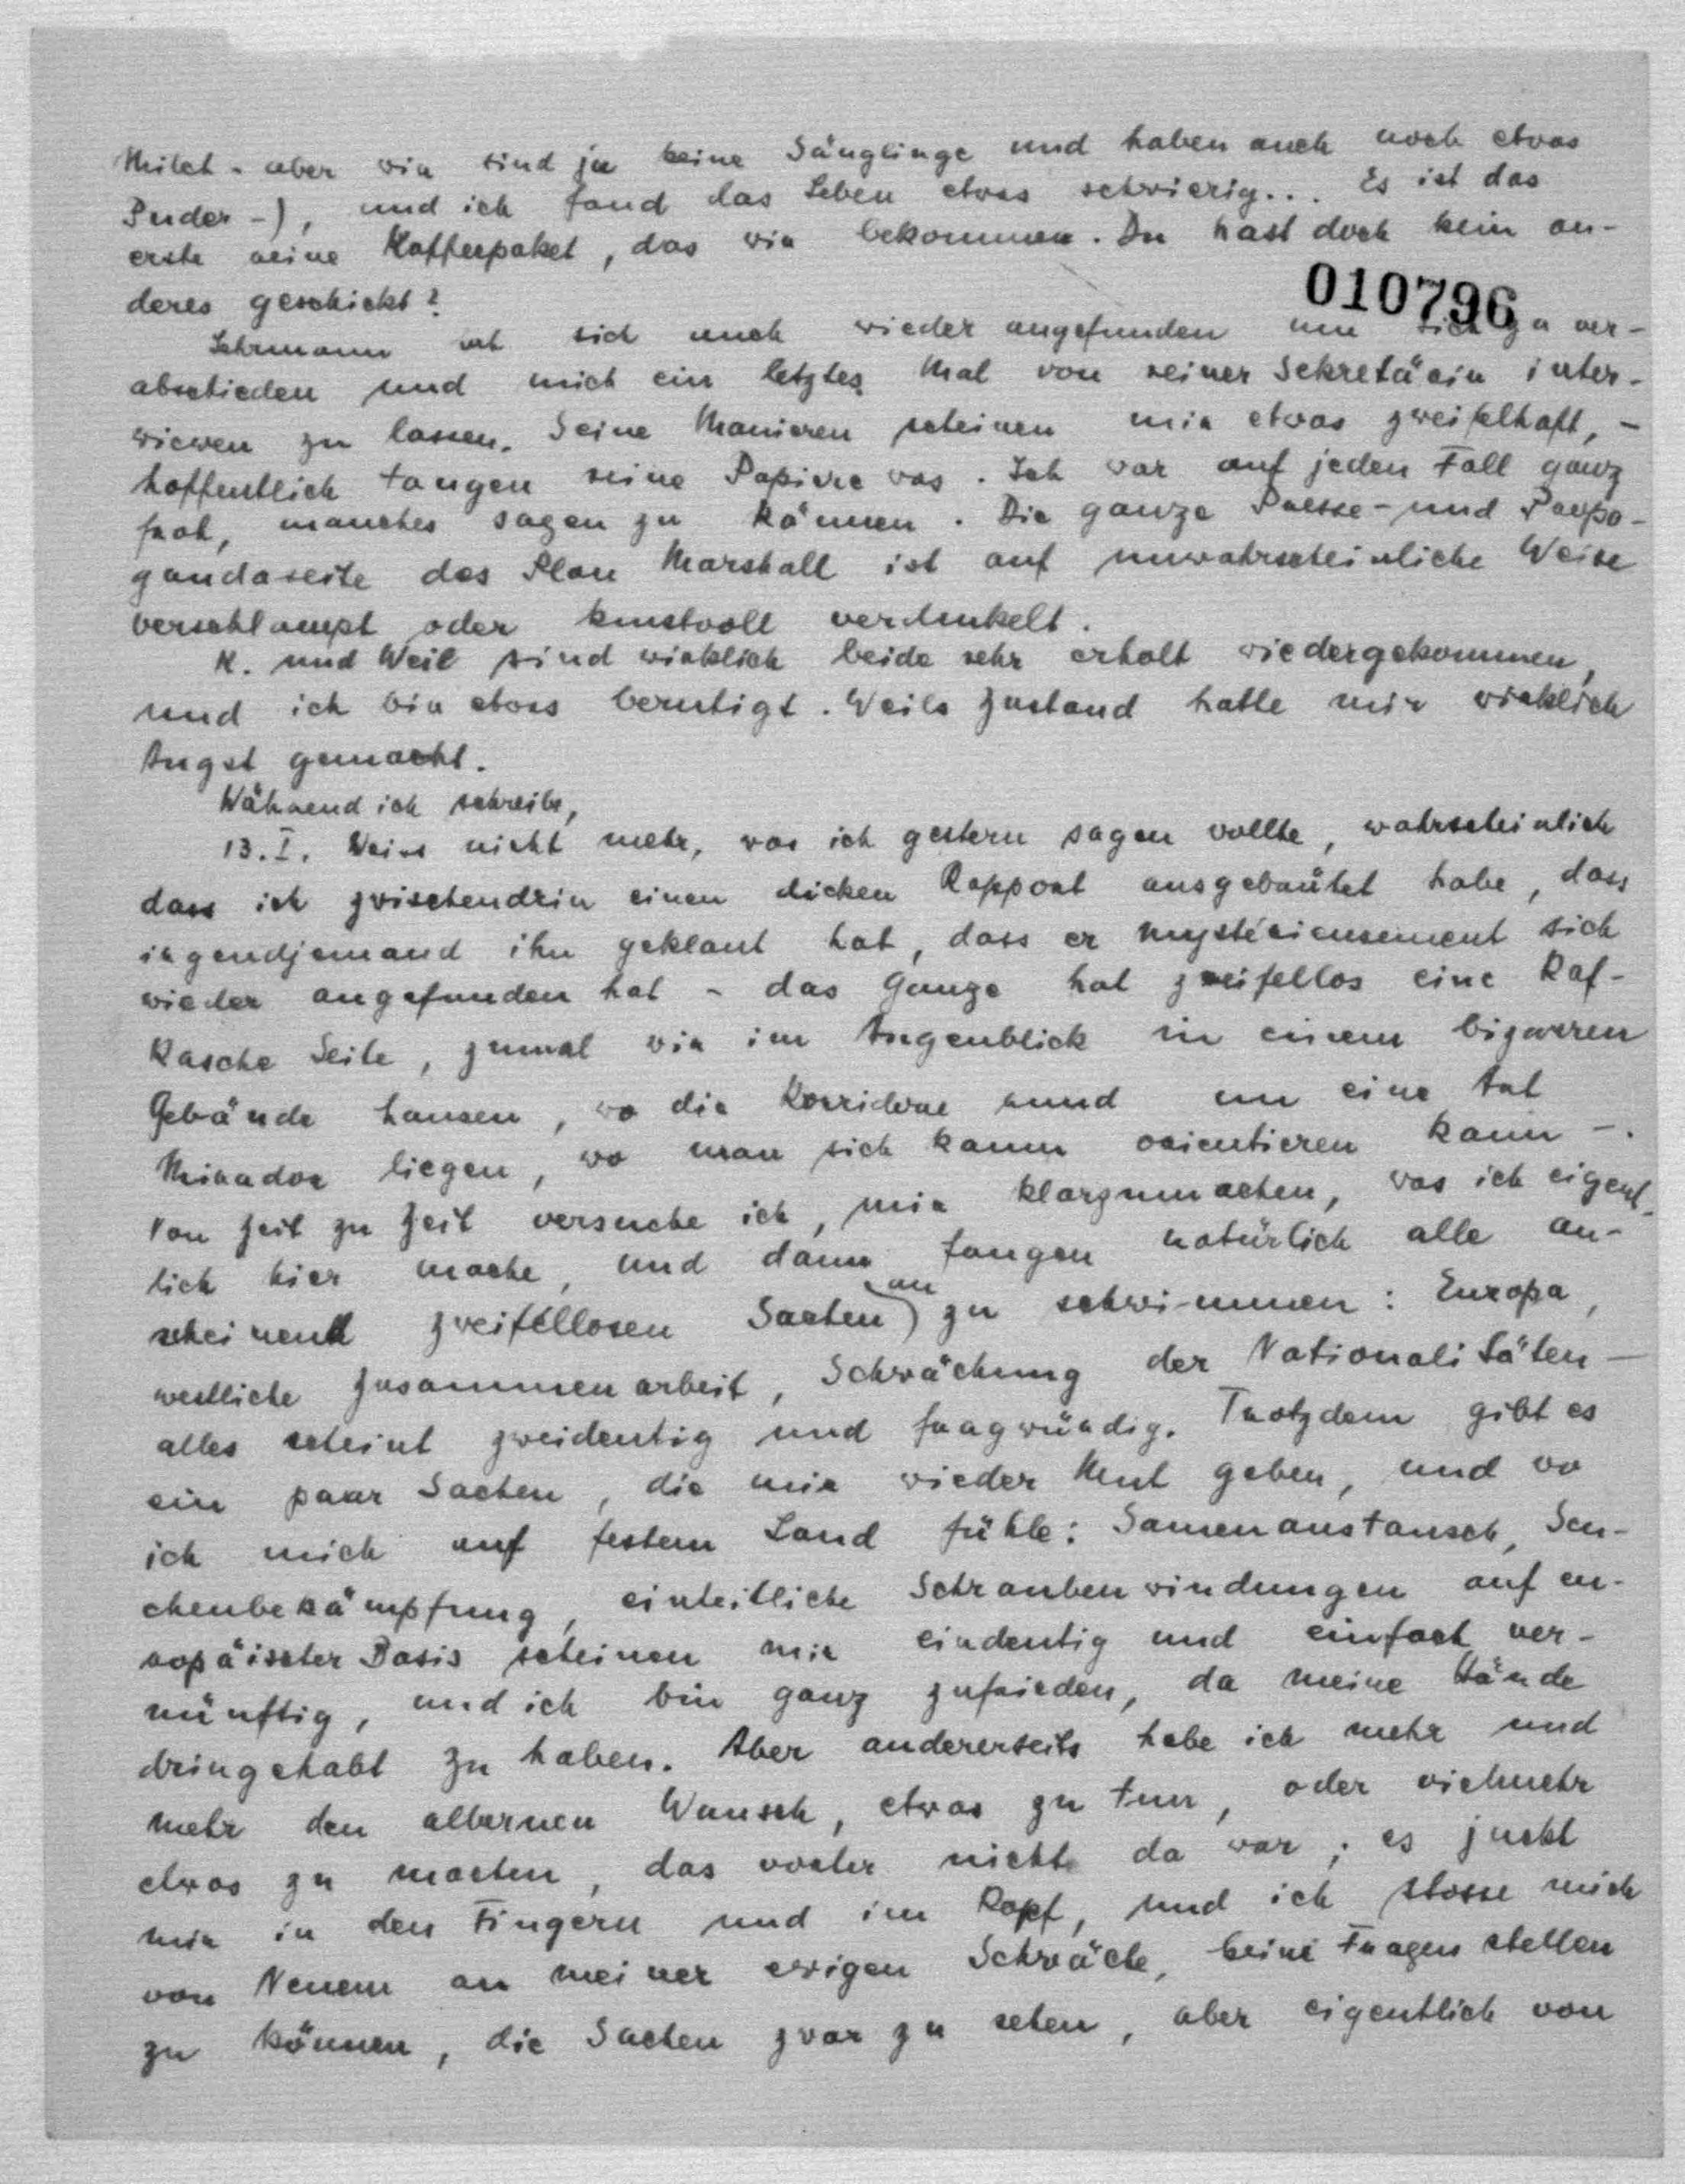 Milch - aber wir sind ja keine Säuglinge und haben auch noch etwas
Puder -), und ich fand das Leben etwas schwierig... Es ist das
erste reine Kaffeepaket, das wir bekommen. Du hast doch kein an-
deres geschickt?
010796
Lehrmann hat sich auch wieder angefunden um sich zu ver-
abschieden und mich ein letztes Mal von seiner Sekretärin inter-
viewen zu lassen. Seine Manieren scheinen mir etwas zweifelhaft, -
hoffentlich taugen seine Papiere was. Ich war auf jeden Fall ganz
froh, manches sagen zu können. Die ganze Presse- und Propa-
gandaseite des Plan Marshall ist auf unwahrscheinliche Weise
verschlampt oder kunstvoll verdunkelt.
K. und Weil sind wirklich beide sehr erholt wiedergekommen,
und ich bin etwas beruhigt. Weils Zustand hatte mir wirklich
Angst gemacht.
Während ich schreibe,
13.I. Weiss nicht mehr, was ich gestern sagen wollte, wahrscheinlich
dass ich zwischendrin einen dicken Rapport ausgebrütet habe, dass
irgendjemand ihn geklaut hat, dass er mystérieusement sich
wieder angefunden hat - das Ganze hat zweifellos eine Kaf-
kasche Seite, zumal wir im Augenblick in einem bizarren
Gebäude hausen, wo die Korridore rund um eine Art
Mirador liegen, wo man sich kaum orientieren kann -.
Von Zeit zu Zeit versuche ich, mir klarzumachen, was ich eigent-
lich hier mache, und dann fangen natürlich alle an-
scheinend zweifellosen Sachen an zu schwimmen: Europa,
westliche Zusammenarbeit, Schwächung der Nationalitäten -
alles scheint zweideutig und fragwürdig. Trotzdem gibt es
ein paar Sachen, die mir wieder Mut geben, und wo
ich mich auf festem Land fühle: Samenaustausch, Seu-
chenbekämpfung, einheitliche Schraubenwindungen auf eu-
ropäischer Basis scheinen mir eindeutig und einfach ver-
nünftig, und ich bin ganz zufrieden, da meine Hände
dringehabt zu haben. Aber andererseits habe ich mehr und
mehr den albernen Wunsch, etwas zu tun, oder vielmehr
etwas zu machen, das vorher nicht da war; es juckt
mir in den Fingern und im Kopf, und ich stosse mich
von Neuem an meiner ewigen Schwäche, keine Fragen stellen
zu können, die Sachen zwar zu sehen, aber eigentlich von